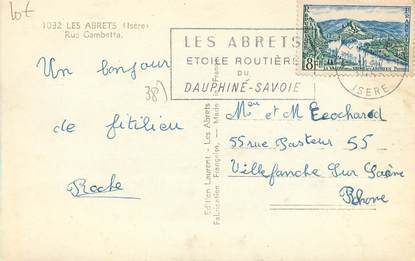 lot
1032 LES ABRETS (Isère)
Rue Gambetta.
Un bonjour
de fitilieu
Roche
38
LES ABRETS
ETOILE ROUTIÈRE
DU
DAUPHINÉ-SAVOIE
8F
ISERE
Edition Laurent - Les Abrets
Fabrication Française. - Made in France
Meu et M Leochard
55 rue Pasteur 55
Villefanche Sur Saône
Rhone